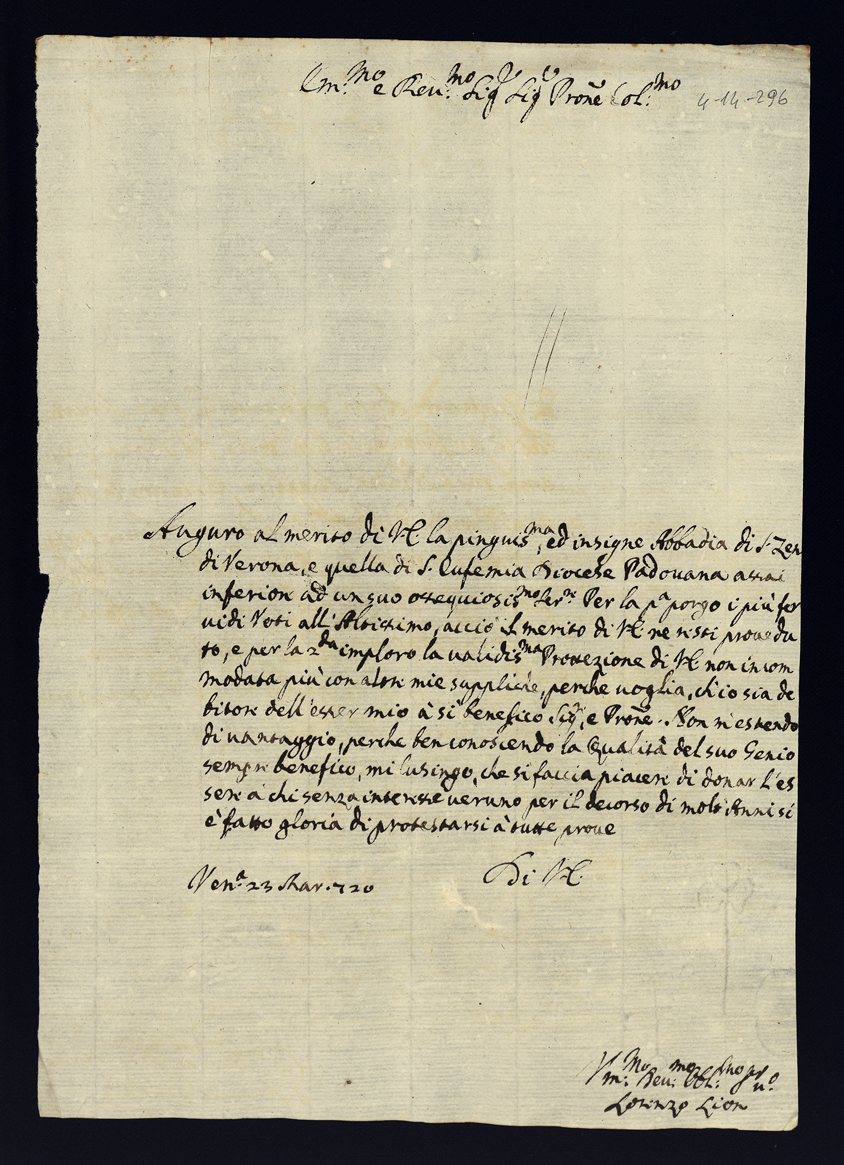 Em.mo e Reu.mo Sig.r Sig.e Prone Col.mo
4-14-296
Auguro al merito di V.E. la pinguis.ma, ed insigne Abbadia di S. Zen
di Verona, e quella di S. Eufemia Diocese Padouana assai
inferiore ad un suo ossequiosis.mo Ser.re Per la p.a porgo i più fer
uidi Voti all'Altissimo, acciò il merito di V.E. ne resti prouedu
to, e per la 2.da imploro la ualidis.ma Protezione di V.E. non incom
modata più con altre mie suppliche, perche uoglia, ch'io sia de
bitore dell'esser mio à sì benefico Sig.e, e Prone. Non m'estendo
di uantaggio, perche ben conoscendo la Qualità del suo Genio
sempre benefico, mi lusingo, che si faccia piacere di donar l'es
sere à chi senza interesse ueruno per il decorso di molti Anni si
è fatto gloria di protestarsi à tutte proue
Di V.E.
Ven.a 23 Mar. 720
Vm.mo Deu.mo Obl.mo Ser.uo
Lorenzo Lion